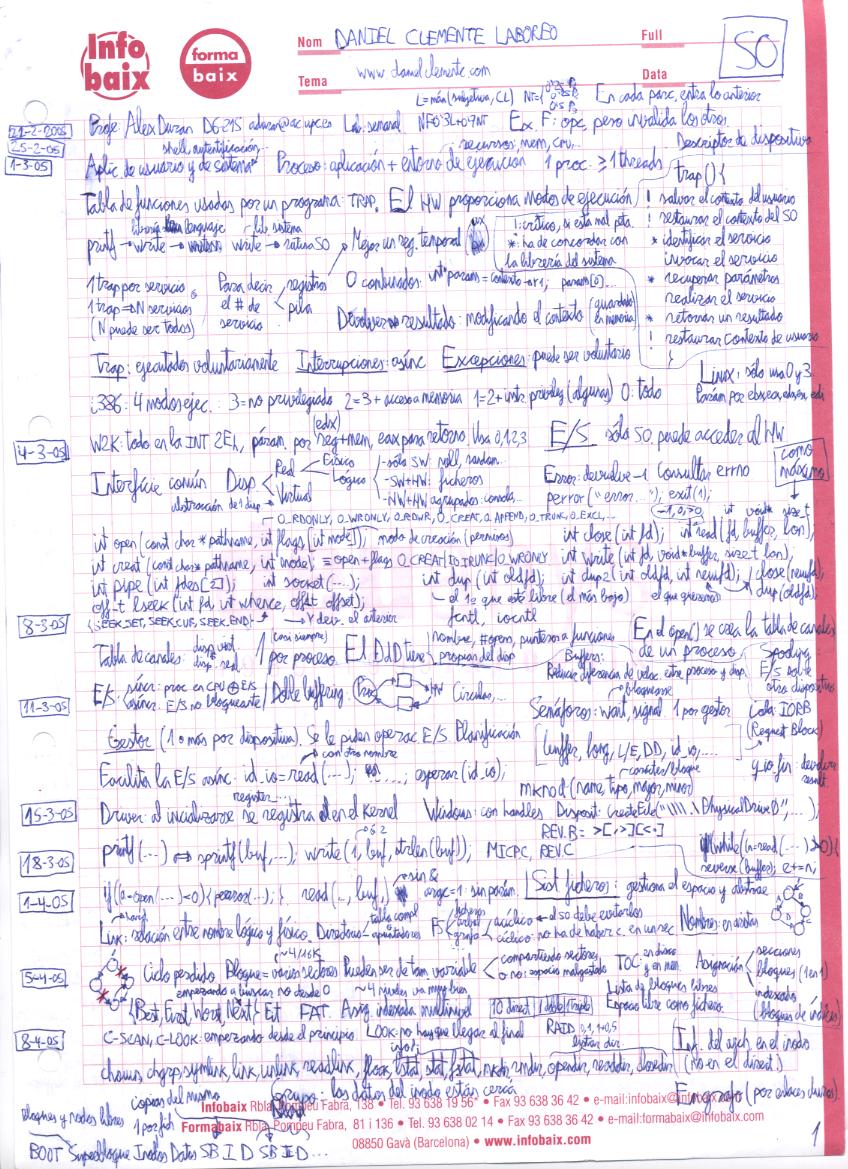 Info baix
forma baix
Nom DANIEL CLEMENTE LABOREO Full
Tema www.danielclemente.com Data
SO
L=máx(subjetiva, CL) NT= En cada parc. entra lo anterior
21-2-2005
25-2-05
1-3-05
Profe: Alex Duran D6-215 aduran@ac.upc.es Lab: semanal NF=0'3L+0'7NT Ex. F: opc, pero invalida los otros
shell, autentificación... recursos: mem, cpu... Descriptor de dispositivo
Aplic de usuario y de sistema Proceso: aplicación + entorno de ejecución 1 proc. ≥ 1 threads
trap(){
Tabla de funciones usadas por un programa: TRAP. El HW proporciona modos de ejecución
! salvar el contexto del usuario
! restaurar el contexto del SO
* identificar el servicio
invocar el servicio
* recuperar parámetros
realizar el servicio
* retornar un resultado
! restaurar contexto de usuario
}
librería lenguaje lib. sistema
printf → write → write → rutina SO Mejor un reg. temporal
!: crítico, si está mal peta.
*: ha de concordar con la librería del sistema
1 trap por servicio
1 trap → N servicios
(N puede ser todos)
Para decir el # de servicio registros pila
O combinados: int *params = contexto->r1; param[0]...
Devolver resultado: modificando el contexto (guardado en memoria)
Trap: ejecutados voluntariamente Interrupciones: asínc Excepciones: puede ser voluntario
Linux: sólo usa 0 y 3.
i386: 4 modos ejec. 3=no privilegiado 2=3+acceso a memoria 1=2+instr. privileg (algunas) 0: todo
Parám por ebx, ecx, edx, esi, edi
(edx)
W2K: todo en la INT 2Eh, parám. por reg+mem, eax para retorno. Usa 0,1,2,3 E/S sólo SO puede acceder al HW
4-3-05
Interfície común Disp. Real Físico
Virtual Lógico
abstracción de 1 disp
-sólo SW: null, random...
-SW+HW: ficheros
-HW+HW agrupados: consola...
Error: devuelve -1 Consultar errno
perror("error..."); exit(1);
como máximo
O_RDONLY, O_WRONLY, O_RDWR, O_CREAT, O_APPEND, O_TRUNC, O_EXCL...
-1, 0, >0 int void* size_t
int open (const char* pathname, int flags [, int mode]); modo de creación (permisos) int close (int fd); int read (fd, buffer, lon);
int creat (const char* pathname, int mode); = open+flags O_CREAT|O_TRUNC|O_WRONLY int write (int fd, void* buffer, size_t lon);
int pipe (int fdes[2]); int socket (...); int dup (int oldfd); int dup2 (int oldfd, int newfd); close(newfd); dup(oldfd);
off_t lseek (int fd, int whence, off_t offset); el 1o que esté libre (el más bajo) el que queramos
8-3-05
(SEEK_SET, SEEK_CUR, SEEK_END) Y devu. el anterior fcntl, ioctl
(casi siempre)
Tabla de canales: disp. virt. disp. real 1 por proceso. El DdD tiene nombre, #opens, punteros a funciones propias del disp En el open() se crea la tabla de canales de un proceso
Buffers: Reducir diferencia de veloc. entre proceso y disp.
Spooling: E/S sobre otro dispositivo
11-3-05
E/S: síncr: proc en CPU ⊕ E/S
asíncr: E/S no bloqueante
Doble buffering Proc HW Circular...
bloquearse
Semáforos: wait, signal. 1 por gestor Cola: IORB (Request Block)
Gestor (1 o más por dispositivo). Se le piden operac E/S Planificación
buffer, long, L/E, DD, id_io,...
con otro nombre
y io_fin: devolver result.
Facilita la E/S asínc: id_io=read(...); ..., esperar(id_io);
carácter/bloque
mknod (name, tipo, major, minor)
15-3-05
register...
Driver: al inicializarse se registra él en el Kernel Windows: con handles Disposit: CreateFile("\\\\.\\PhysicalDrive0",...);
REV.B= >[,>][<.]
18-3-05
1 o 2
printf(...) ⇔ sprintf(buf,...); write(1, buf, strlen(buf)); MICPC, REV.C
while(n=read(...)>0){
reverse(buffer); e+=n;
1-4-05
if((a=open(...)<0){perror(...);} read(.., buf,) sin & argc=1: sin parám. Sist ficheros: gestiona el espacio y abstrae
Link: relación entre nombre lógico y físico. Directorios tabla compl apuntadores FS ficheros árbol grafo acíclico el SO debe evitarlos
cíclico: no ha de haber c. en un sec Nombres: en aristas
5-4-05
~4/16K
Ciclo perdido Bloque=varios sectores Pueden ser de tam variable compartiendo sectores o no: espacio malgastado TOC: en disco y en mem. Asignación secciones bloques (1 en 1) indexados (bloques de índices)
empezando a buscar no desde 0 ~4 niveles va muy bien Lista de bloques libres
{Best, First, Worst, Next} Fit FAT. Asig. indexada multinivel 10 direct | doble | triple Espacio libre como fichero.
8-4-05
C-SCAN, C-LOOK: empezando desde el principio. LOOK: no hay que llegar al final RAID 0,1, 1+0,5 Inf. del arch. en el inodo (no en el direct.)
info! listar dir.
chown, chgrp, symlink, link, unlink, readlink, lstat, stat, fstat, mkdir, rmdir, opendir, readdir, closedir
grupo: los datos del inodo están cerca Es grafo (por enlaces duros).
copias del mismo
bloques y nodos libres 1 por fich
BOOT Superbloque Inodos Datos SB I D SB I D ...
Infobaix Rbla. Pompeu Fabra, 138 • Tel. 93 638 19 56 • Fax 93 638 36 42 • e-mail:infobaix@infobaix.com
Formabaix Rbla. Pompeu Fabra, 81 i 136 • Tel. 93 638 02 14 • Fax 93 638 36 42 • e-mail:formabaix@infobaix.com
08850 Gavà (Barcelona) • www.infobaix.com
1